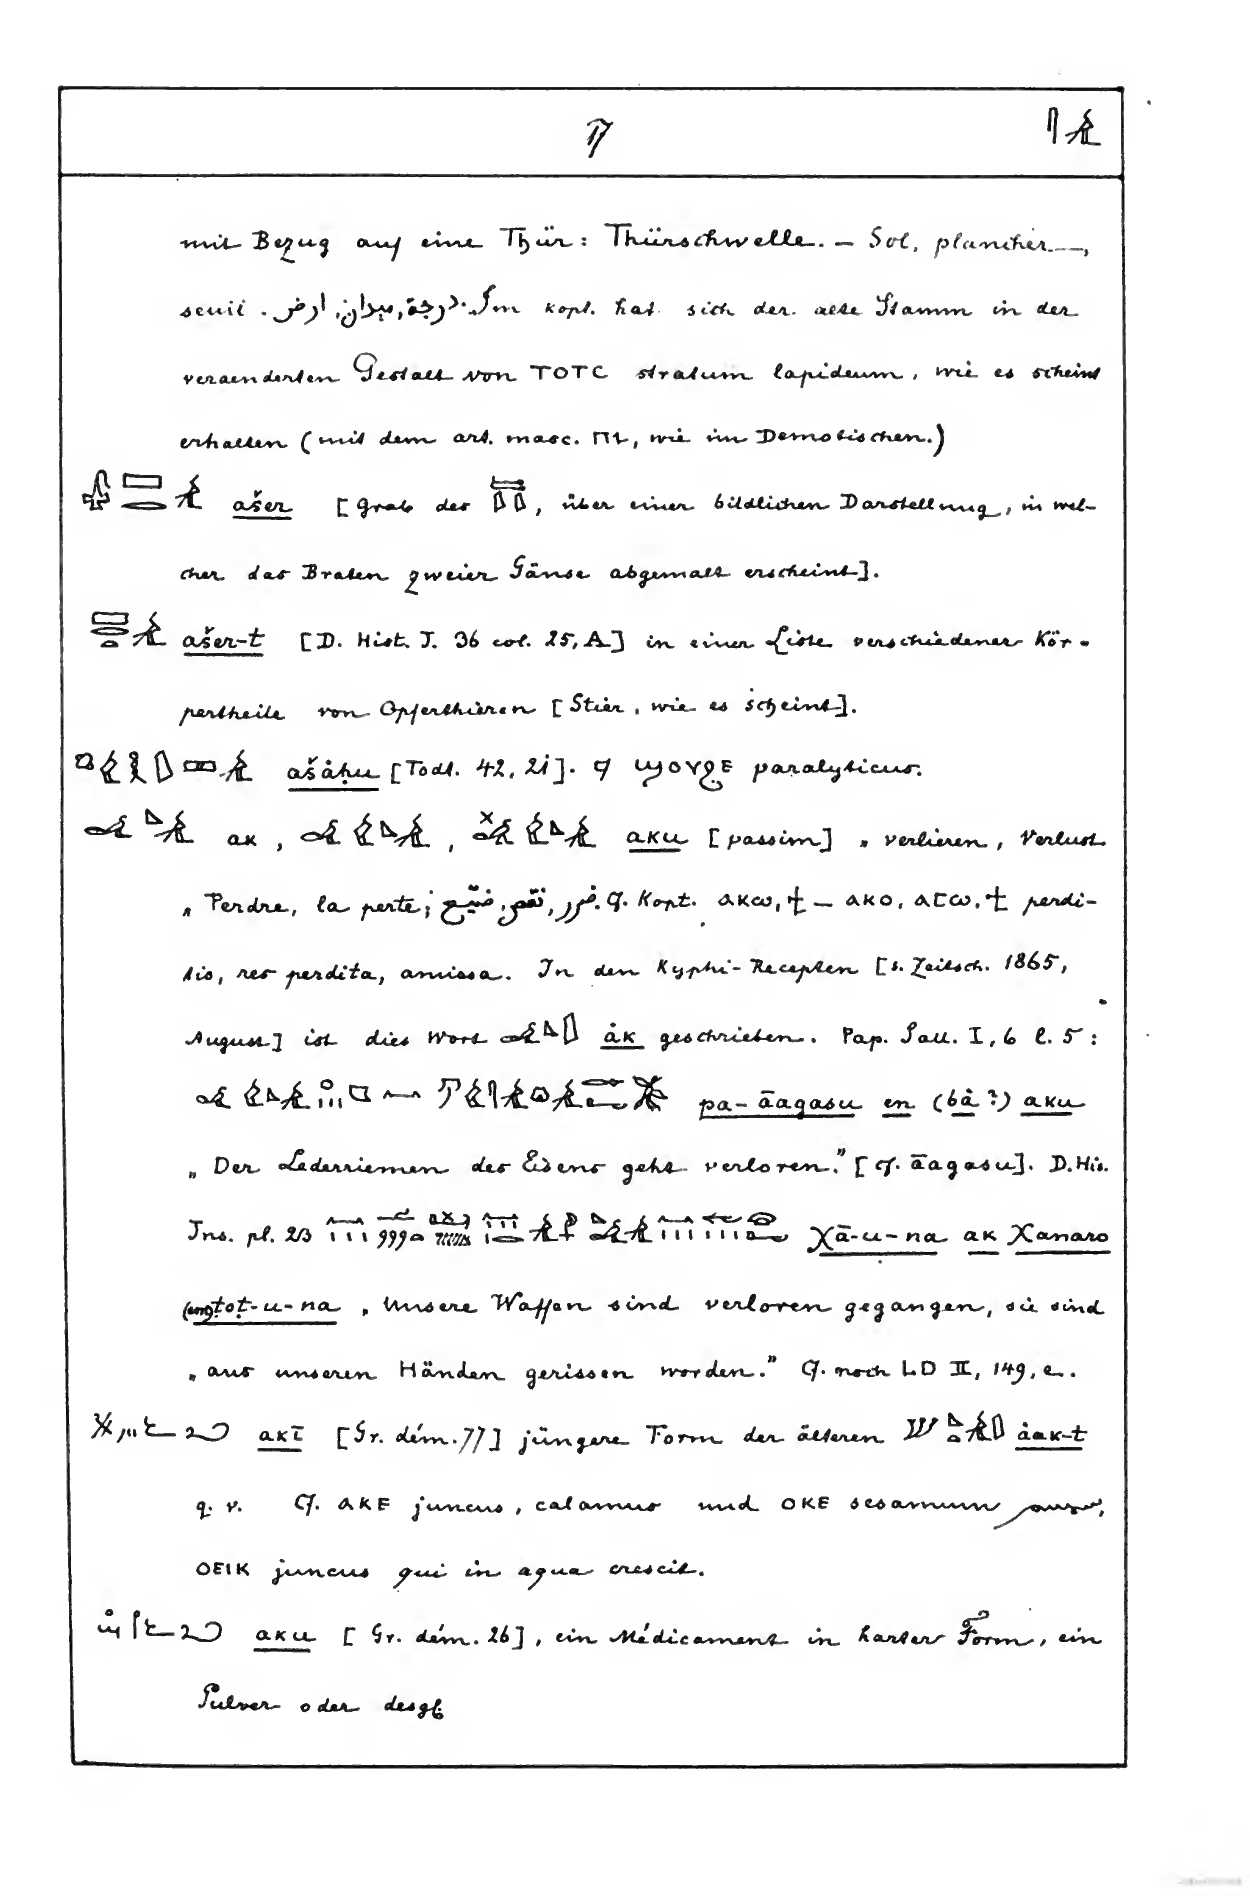 17
mit Bezug auf eine Thür: Thürschwelle. — Sol, plancher —,
seuil . درجة, ميدان, ارض. Im kopt. hat sich der alte Stamm in der
veraenderten Gestalt von ΤΟΤC stratum lapideum, wie es scheint
erhalten (mit dem art. masc. ΠΙ, wie im Demotischen.)
ašer [Grab des , über einer bildlichen Darstellung, in wel-
cher das Braten zweier Gänse abgemalt erscheint].
ašer-t [D. Hist. I. 36 col. 25, A] in einer Liste verschiedener Kör-
pertheile von Opferthieren [Stier, wie es scheint].
ašȧḥu [Todt. 42, 21]. cf ϣⲟⲩϩⲉ paralyticus.
ak , , aku [passim] „ verlieren, Verlust
„ Perdre, la perte; ضرر, نقص, ضيّع. Cf. Kopt. ⲁⲕⲱ, ϯ — ⲁⲕⲟ, ⲁⲧⲱ, ϯ perdi-
tio, res perdita, amissa. In den Kyphi-Recepten [s. Zeitsch. 1865,
August] ist dies Wort ȧk geschrieben. Pap. Sall. I, 6 l. 5 :
pa-āagasu en (bȧ?) aku
„ Der Lederriemen des Eisens geht verloren." [cf. āagasu]. D. His.
Ins. pl. 23 χā-u-na ak χanaro
(em)ṭoṭ-u-na „ Unsere Waffen sind verloren gegangen, sie sind
„ aus unseren Händen gerissen worden." Cf. noch LD III, 149, e.
akī [Gr. dém. 77] jüngere Form der älteren ȧak-t
q. v. Cf. ⲁⲕⲉ juncus, calamus und ⲟⲕⲉ sesamum
ⲟⲉⲓⲕ juncus qui in aqua crescit.
aku [Gr. dém. 26], ein Médicament in harter Form, ein
Pulver oder desgl.